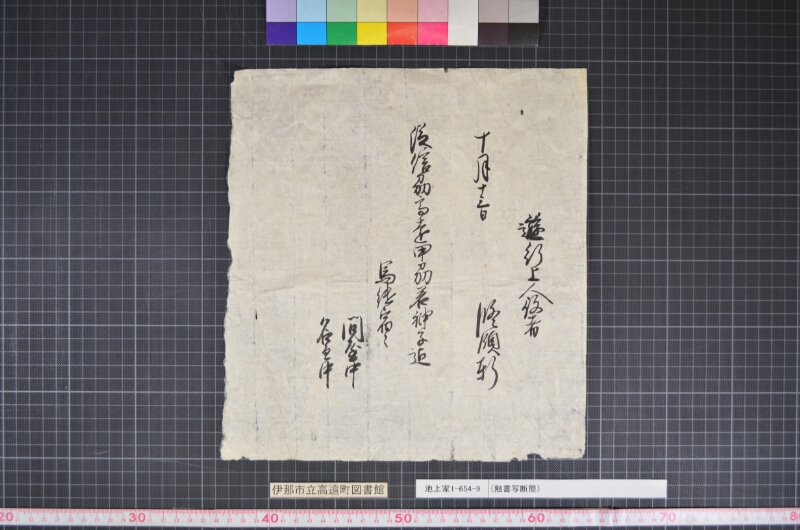 遊行上人役者
十月十三日
修領軒
従信州高遠甲州若神子迄
馬継宿々
問屋中
名主中
伊那市立高遠町図書館
池上家1-654-9 (触書写断簡)
20 30 40 50 60 70 80